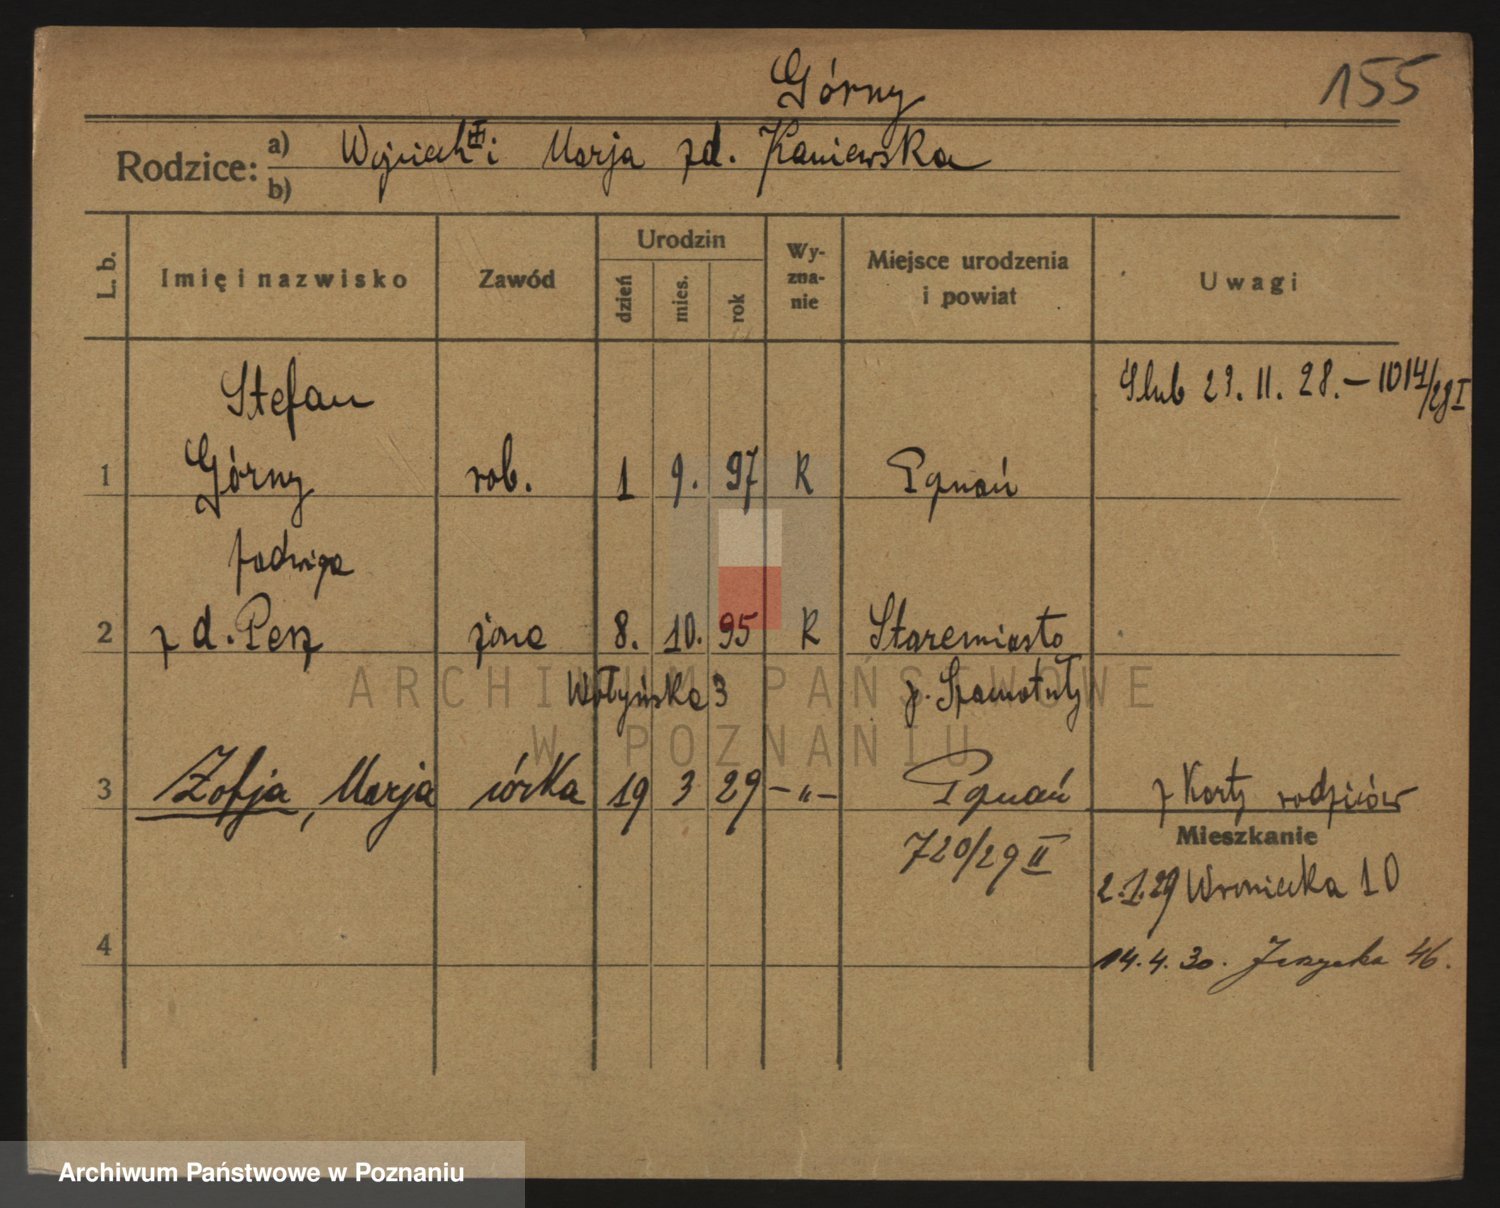 Górny
155
Rodzice: a) Wojciech i Marja zd. Kaniewska
b)
L. b. Imię i nazwisko Zawód Urodzin dzień mies. rok Wy-zna-nie Miejsce urodzenia i powiat Uwagi
Stefan Ślub 29. 11. 28. – 1014/28 I
1 Górny rob. 1 9. 97 K Poznań
Jadwiga
2 z d. Pesz żona 8. 10. 95 K Staremiasto
Wołyńska 3 p. Szamotuły
3 Zofja, Marja córka 19 3 29 –„– Poznań z Karty rodziców
720/29 II Mieszkanie
2.1.29 Wroniecka 10
4 14. 4. 30. Jeżycka 46.
ARCHIWUM PAŃSTWOWE
W POZNANIU
Archiwum Państwowe w Poznaniu